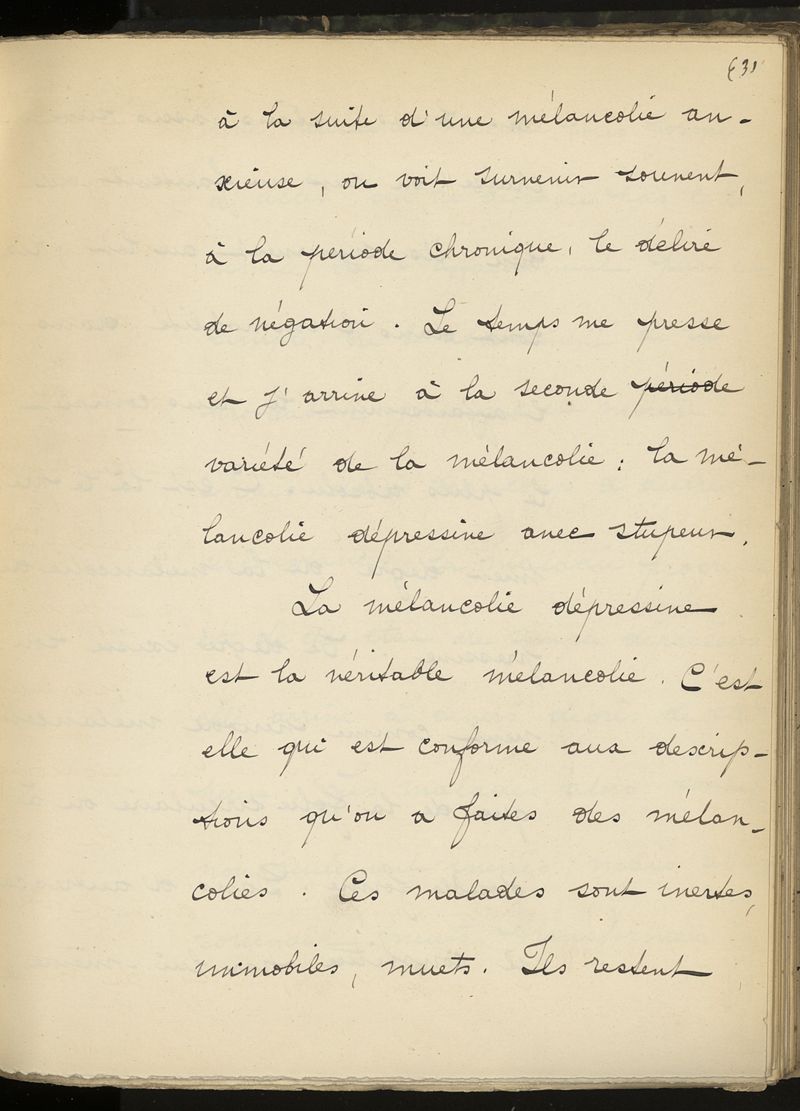 631
à la suite d'une mélancolie an-
xieuse, on voit survenir souvent,
à la période chronique, le délire
de négation. Le temps me presse
et j'arrive à la seconde période
variété de la mélancolie : la mé-
lancolie dépressive avec stupeur.
La mélancolie dépressive
est la véritable mélancolie. C'est
elle qui est conforme aux descrip-
tions qu'on a faites des mélan-
colies. Ces malades sont inertes,
immobiles, muets. Ils restent